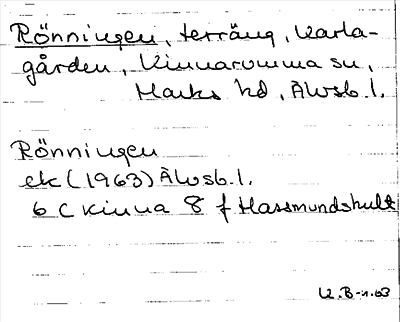 Rönningen, terräng, Karla-
gården, Kinnarumma sn,
Marks hd, Älvsb.l.
Rönningen
ek (1963) Älvsb.l.
6 C Kinna 8 f Hassmundshult
K.B-n. 63